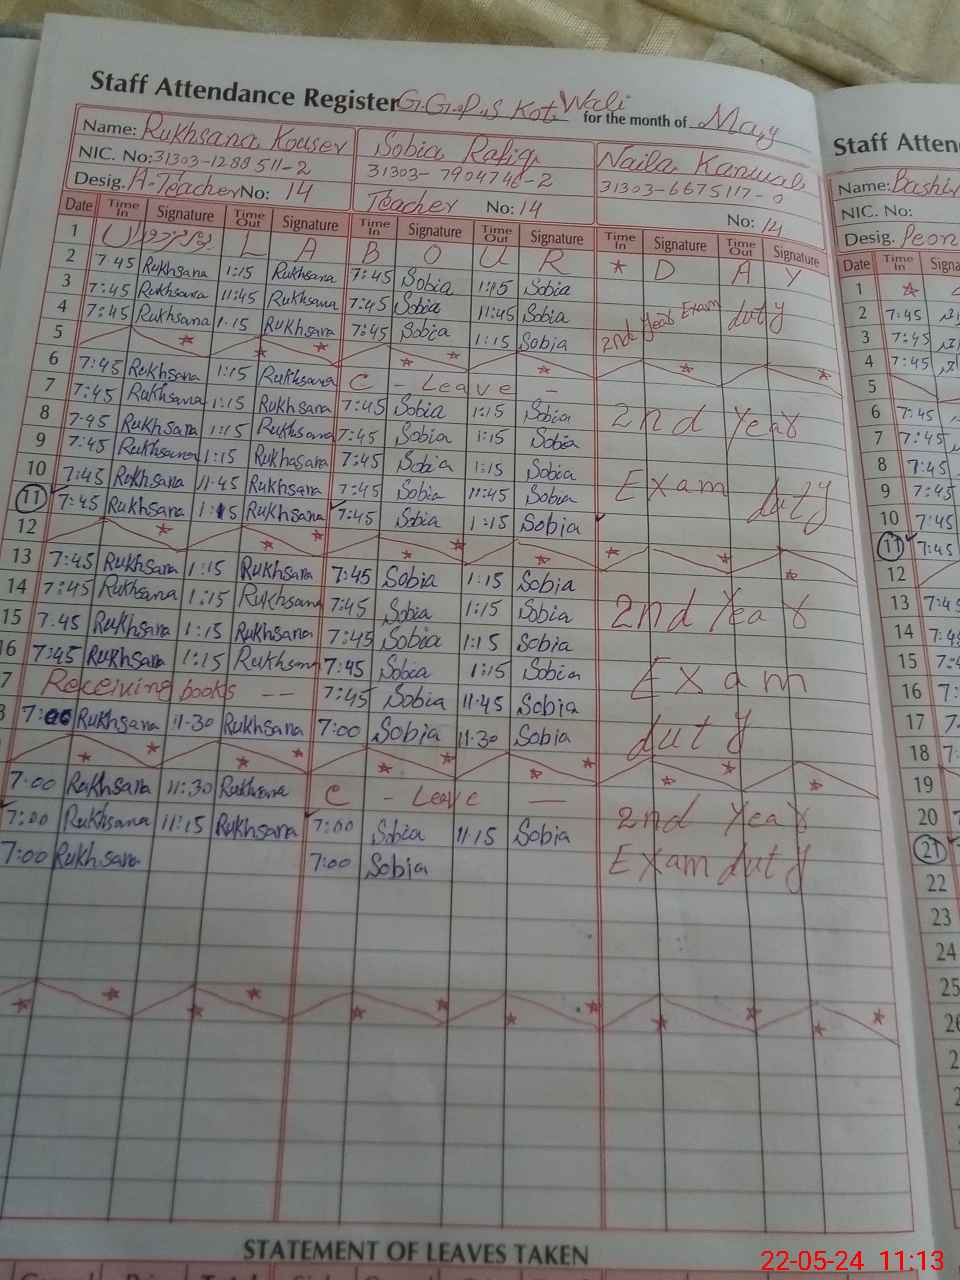 Staff Attendance Register G.G.P.S Kot Wali for the month of May
Name: Rukhsana Kouser Sobia Rafiq Naila Kanwal
NIC. No: 31303-1288511-2 31303-7904746-2 31303-6675117-0
Desig. A-Teacher No: 14 Teacher No: 14 No: 14
Date Time In Signature Time Out Signature Time In Signature Time Out Signature Time In Signature Time Out Signature
1 L A B O U R * D A Y
2 7:45 Rukhsana 1:15 Rukhsana 7:45 Sobia 1:15 Sobia
3 7:45 Rukhsana 11:45 Rukhsana 7:45 Sobia 11:45 Sobia 2nd Year Exam duty
4 7:45 Rukhsana 1:15 Rukhsana 7:45 Sobia 1:15 Sobia
5
6 7:45 Rukhsana 1:15 Rukhsana C - Leave -
7 7:45 Rukhsana 1:15 Rukhsana 7:45 Sobia 1:15 Sobia 2nd Year
8 7:45 Rukhsana 1:15 Rukhsana 7:45 Sobia 1:15 Sobia
9 7:45 Rukhsana 1:15 Rukhasana 7:45 Sobia 1:15 Sobia
10 7:45 Rukhsana 11:45 Rukhsana 7:45 Sobia 11:45 Sobia Exam duty
11 7:45 Rukhsana 1:15 Rukhsana 7:45 Sobia 1:15 Sobia
12
13 7:45 Rukhsana 1:15 Rukhsana 7:45 Sobia 1:15 Sobia
14 7:45 Rukhsana 1:15 Rukhsana 7:45 Sobia 1:15 Sobia 2nd Year
15 7:45 Rukhsana 1:15 Rukhsana 7:45 Sobia 1:15 Sobia
16 7:45 Rukhsana 1:15 Rukhsana 7:45 Sobia 1:15 Sobia Exam
7 Receiving books -- 7:45 Sobia 11:45 Sobia
8 7:00 Rukhsana 11:30 Rukhsana 7:00 Sobia 11:30 Sobia duty
7:00 Rukhsana 11:30 Rukhsana C - Leave —
7:00 Rukhsana 11:15 Rukhsana 7:00 Sobia 11:15 Sobia 2nd Year
7:00 Rukhsana 7:00 Sobia Exam duty
STATEMENT OF LEAVES TAKEN
Staff Atten
Name: Bashir
NIC. No:
Desig. Peon
Date Time In Signa
1
2 7:45
3 7:45
4 7:45
5
6 7:45
7 7:45
8 7:45
9 7:45
10 7:45
11 7:45
12
13 7:45
14 7:45
15 7:4
16 7:
17 7
18 7
19
20 7
21
22
23
24
25
26
22-05-24 11:13